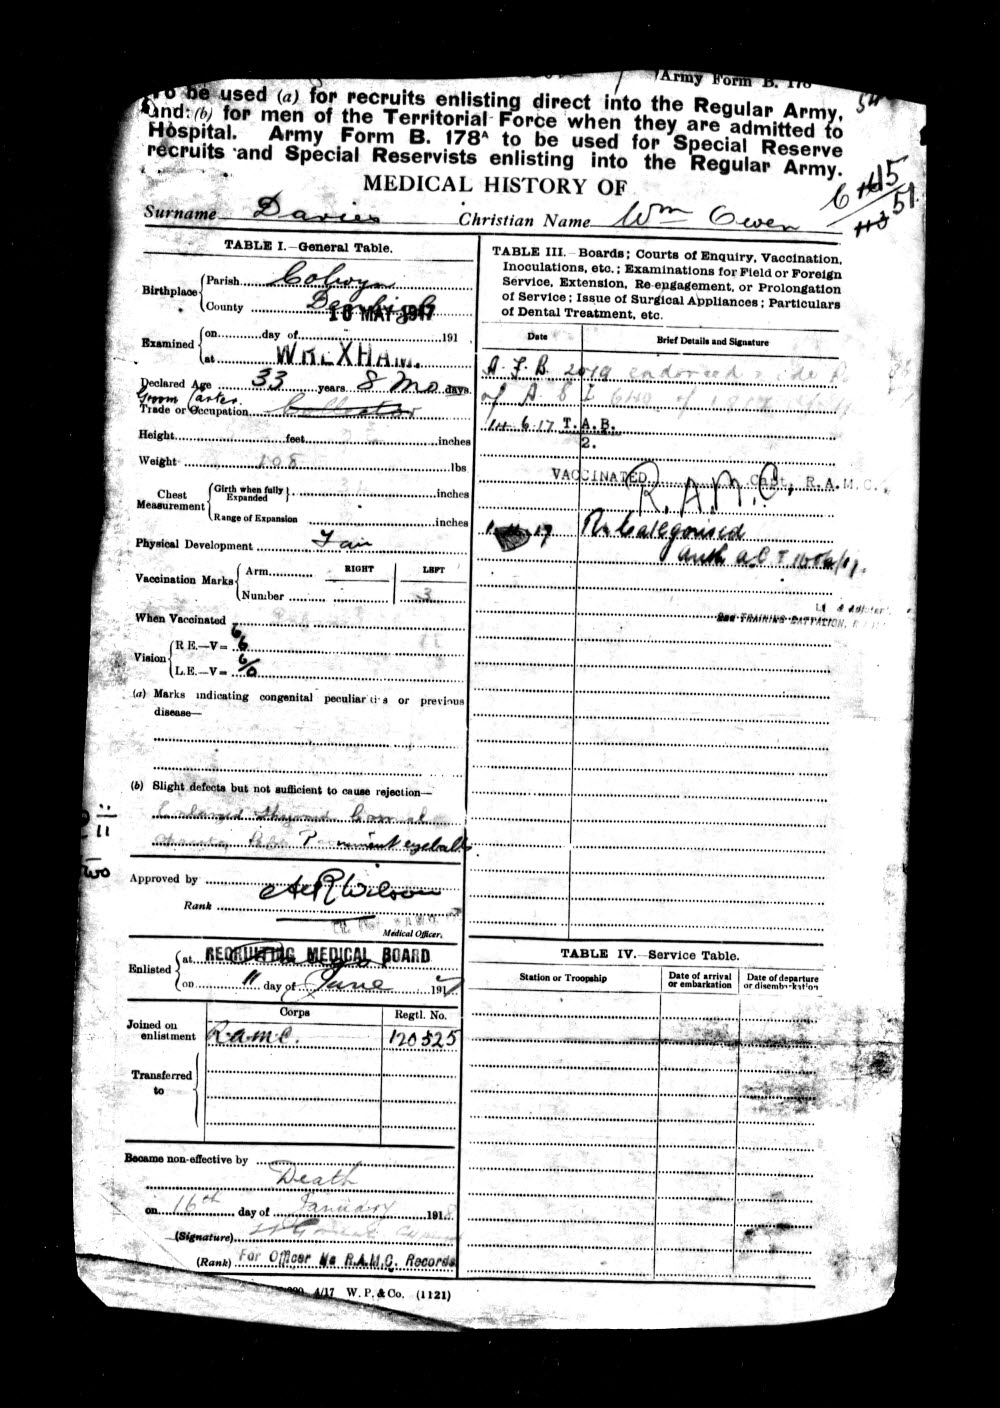 Army Form B. 178
To be used (a) for recruits enlisting direct into the Regular Army,
and (b) for men of the Territorial Force when they are admitted to
Hospital. Army Form B. 178A to be used for Special Reserve
recruits and Special Reservists enlisting into the Regular Army.
MEDICAL HISTORY OF
Surname Davies Christian Name Wm Owen
TABLE I.—General Table.
Birthplace
Parish Colwyn
County Denbigh
16 MAY 1917
Examined
on day of 191
at WREXHAM.
Declared Age 33 years 8 Mo days
Groom Carter
Trade or Occupation
Height feet inches
Weight 108 lbs
Chest Measurement
Girth when fully Expanded inches
Range of Expansion inches
Physical Development Fair
Vaccination Marks
RIGHT LEFT
Arm
Number 3
When Vaccinated
Vision
R.E.—V= 6/6
L.E.—V=
(a) Marks indicating congenital peculiarities or previous
disease—
(b) Slight defects but not sufficient to cause rejection—
Enlarged Thyroid
Prominent eyeballs
Approved by A R Wilson
Rank
Medical Officer.
Enlisted
at RECRUITING MEDICAL BOARD
on 11 day of June 1917
Corps Regtl. No.
Joined on enlistment R.A.M.C. 120525
Transferred to
Became non-effective by
Death
on 16th day of January 191
(Signature)
(Rank) For Officer i/c R.A.M.C. Records
4/17 W. P. & Co. (1121)
TABLE III.—Boards; Courts of Enquiry, Vaccination,
Inoculations, etc.; Examinations for Field or Foreign
Service, Extension, Re-engagement, or Prolongation
of Service; Issue of Surgical Appliances; Particulars
of Dental Treatment, etc.
Date Brief Details and Signature
A. F. B. 2079 endorsed
14.6.17 T.A.B.
2.
VACCINATED Capt, R.A.M.C.
R.A.M.C.
17 Re Categorised
auth
TRAINING BATTALION,
TABLE IV.—Service Table.
Station or Troopship
Date of arrival or embarkation
Date of departure or disembarkation